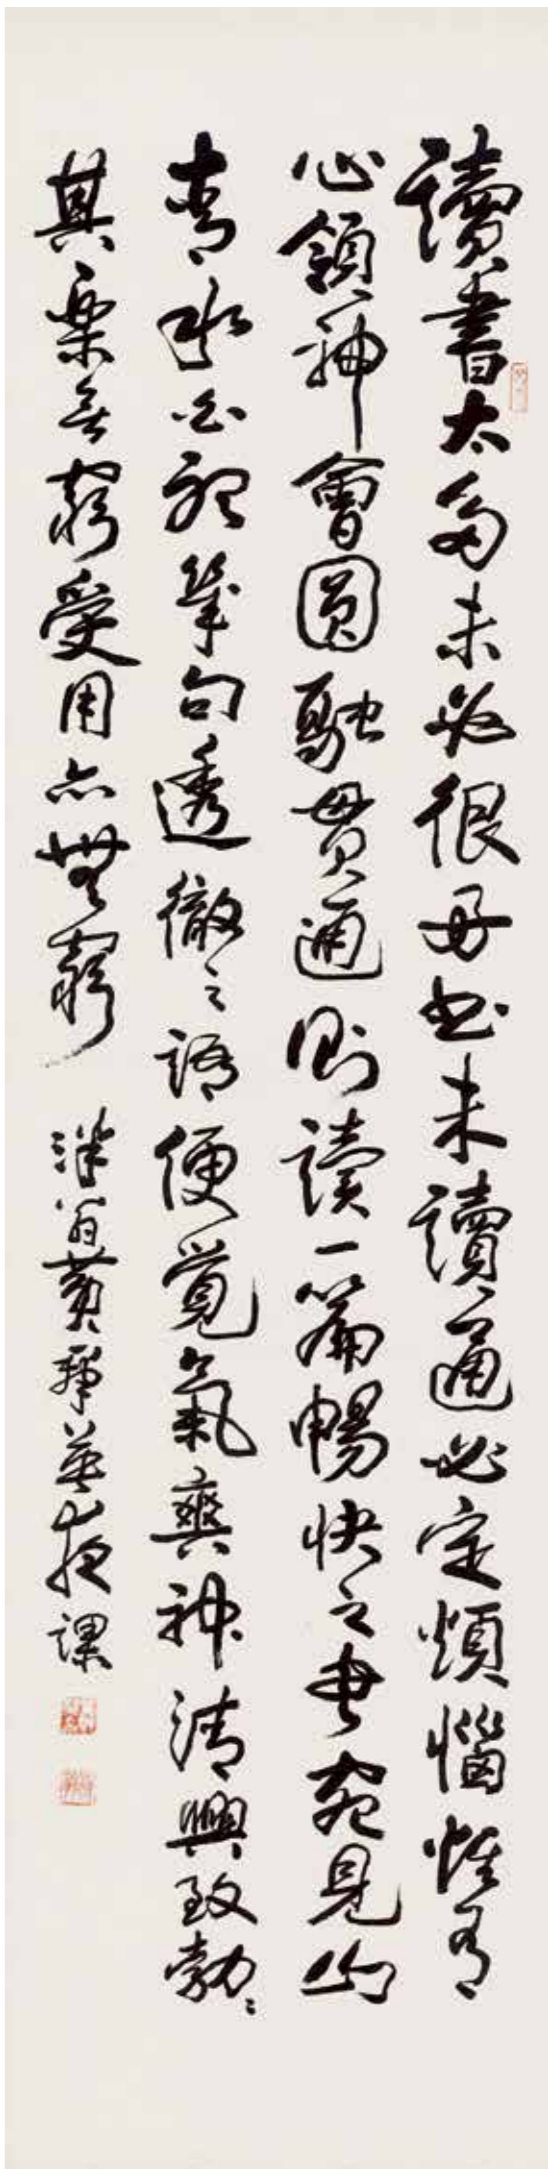 讀書太多未必很好書未讀通必定煩惱惟有
心領神會圓融貫通則讀一篇暢快之書宛見山
青水白視筆句透徹之語便覺氣爽神清興致勃〻
其樂無窮受用亦無窮 澤翁黃舜英夜課